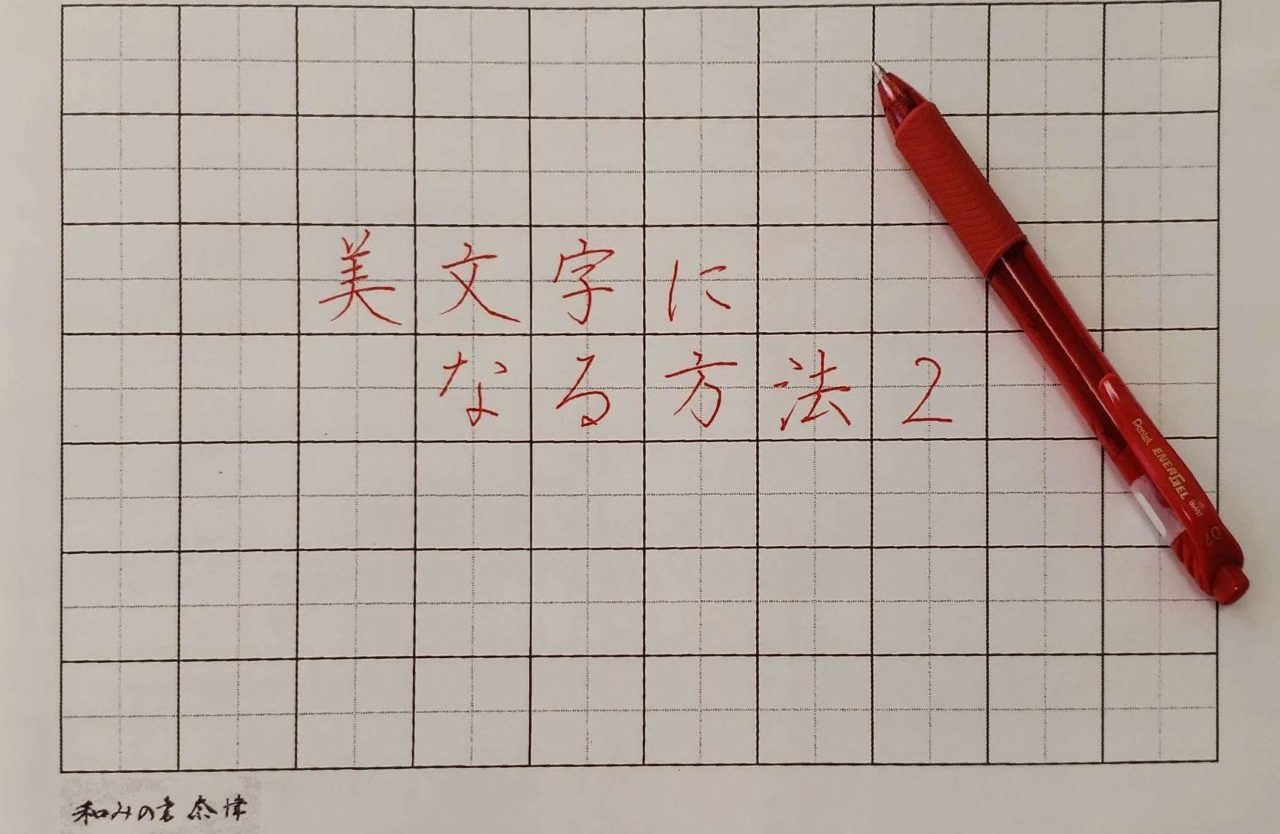 美文字に
なる方法2
Pentel ENERGEL
07
和みの書 奈津